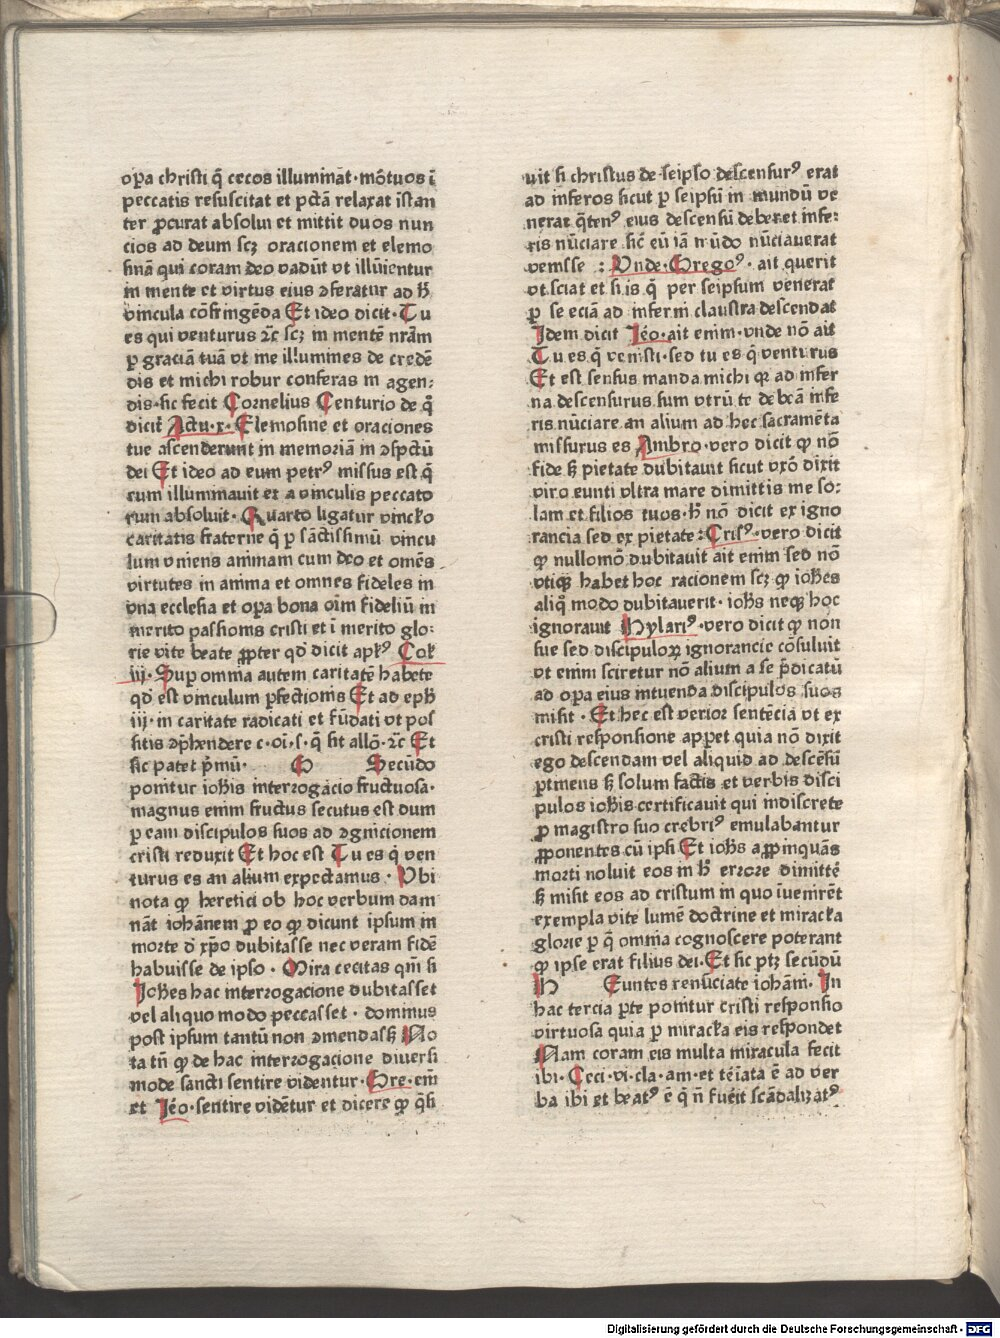 oꝑa christi q̄ cecos illumināt · mõtuos ī
peccatis resuscitat et pctā relaxat īstan
ter ꝓcurat absolui et mittit duos nun
cios ad deum scꝫ oracionem et elemo
sinā qui coram deo vadūt vt illūientur
in mente et virtus eius ꝯferatur ad ħ
vincula cõfringēda Et ideo dicit · Tu
es qui venturus ⁊c̄ scꝫ in mentē nrām
ꝑ graciā tuā vt me illumines de credē
dis et michi robur conferas in agen⸗
dis · sic fecit Cornelius Centurio de q̊
dicit̄ Actu · x · Elemosine et oraciones
tue ascenderunt in memoriā in ꝯspctū
dei Et ideo ad eum petrꝰ missus est q̄
eum illuminauit et a vinculis peccato
rum absoluit · Quarto ligatur vinclo
caritatis fraterne q̄ ꝑ sāctissimū vincu
lum vniens animam cum deo et omēs
virtutes in anima et omnes fideles in
vna ecclesia et oꝑa bona oīm fideliū in
merito passionis cristi et ī merito glo⸗
rie vite beate ꝓpter qd̄ dicit aplꝰ Col
iij · Suꝑ omnia autem caritatē habete
qd̄ est vinculum ꝑfectionis Et ad eph̄
iij · in caritate radicati et fūdati vt pos
sitis ꝯp̄hendere c · oī · s · q̄ sit allõ · ⁊c̄ Et
sic patet p̄mū · O Secūdo
ponitur ioħis interrogacio fructuosa ·
magnus enim fructus secutus est dum
ꝑ eam discipulos suos ad ꝯgnicionem
cristi reduxit Et hoc est Tu es q̄ ven
turus es an alium expectamus · Vbi
nota ꝙ heretici ob hoc verbum dam
nāt iohānem ꝑ eo ꝙ dicunt ipsum in
morte d̄ xp̄o dubitasse nec veram fidē
habuisse de ipso · Mira cecitas qm̄ si
Joħes hac interrogacione dubitasset
vel aliquo modo peccasset · dominus
post ipsum tantū non ꝯmendasꝫ No
ta tn̄ ꝙ de hac interrogacione diuersi
mode sancti sentire videntur · Gre · em̄
et Jēo · sentire vidētur et dicere ꝙ q̄si
uit si christus de seipso descensurꝰ erat
ad inferos sicut ꝑ seipsū in mundū ve
nerat q̄tenꝰ eius descensū deberet infe⸗
ris nūciare sic̄ eū iā mūdo nūciauerat
venisse : Vnde · Gregoꝰ · ait querit
vt sciat et si is q̄ per seipsum venerat
ꝑ se eciā ad inferni claustra descendat
Jdem dicit Jēo · ait enim · vnde nõ ait
Tu es q̄ venisti · sed tu es q̄ venturus
Et est sensus manda michi qr ad infer
na descensurus sum vtrū te debeā infe
ris nūciare an alium ad hec sacramēta
missurus es Ambro · vero dicit ꝙ nõ
fide sꝫ pietate dubitauit sicut vxõ dixit
viro eunti vltra mare dimittis me so⸗
lam et filios tuos · ħ nõ dicit ex igno
rancia sed ex pietate : Crisꝰ · vero dicit
ꝙ nullomõ dubitauit ait enim sed nõ
vtiqꝫ habet hoc racionem scꝫ ꝙ ioħes
aliq̊ modo dubitauerit · ioħs neqꝫ hoc
ignorauit Hylariꝰ · vero dicit ꝙ non
sue sed discipuloꝝ ignorancie cõsuluit
vt enim sciretur nõ alium a se p̄dicatū
ad oꝑa eius intuenda discipulos suos
misit · Et hec est verior sentēcia vt ex
cristi responsione apꝑet quia nõ dixit
ego descendam vel aliquid ad descēsū
ꝑtinens sꝫ solum factis et verbis disci
pulos ioħis certificauit qui indiscrete
ꝑ magistro suo crebriꝰ emulabantur
ꝓponentes cū ipsi Et ioħs aꝓpinquās
morti noluit eos in ħ errore dimittē
sꝫ misit eos ad cristum in quo īuenirēt
exempla vite lumē doctrine et miracla
glorie ꝑ q̄ omnia cognoscere poterant
ꝙ ipse erat filius dei · Et sic ptꝫ secūdū
H Euntes renūciate iohāni · In
hac tercia ꝑte ponitur cristi responsio
virtuosa quia ꝑ miracla eis respondet
Nam coram eis multa miracula fecit
ibi · Ceci · vi · cla · am · et tēīata ē ad ver
ba ibi et beatꝰ ē q̄ n̄ fuēit scādalizatꝰ
Digitalisierung gefördert durch die Deutsche Forschungsgemeinschaft · DFG